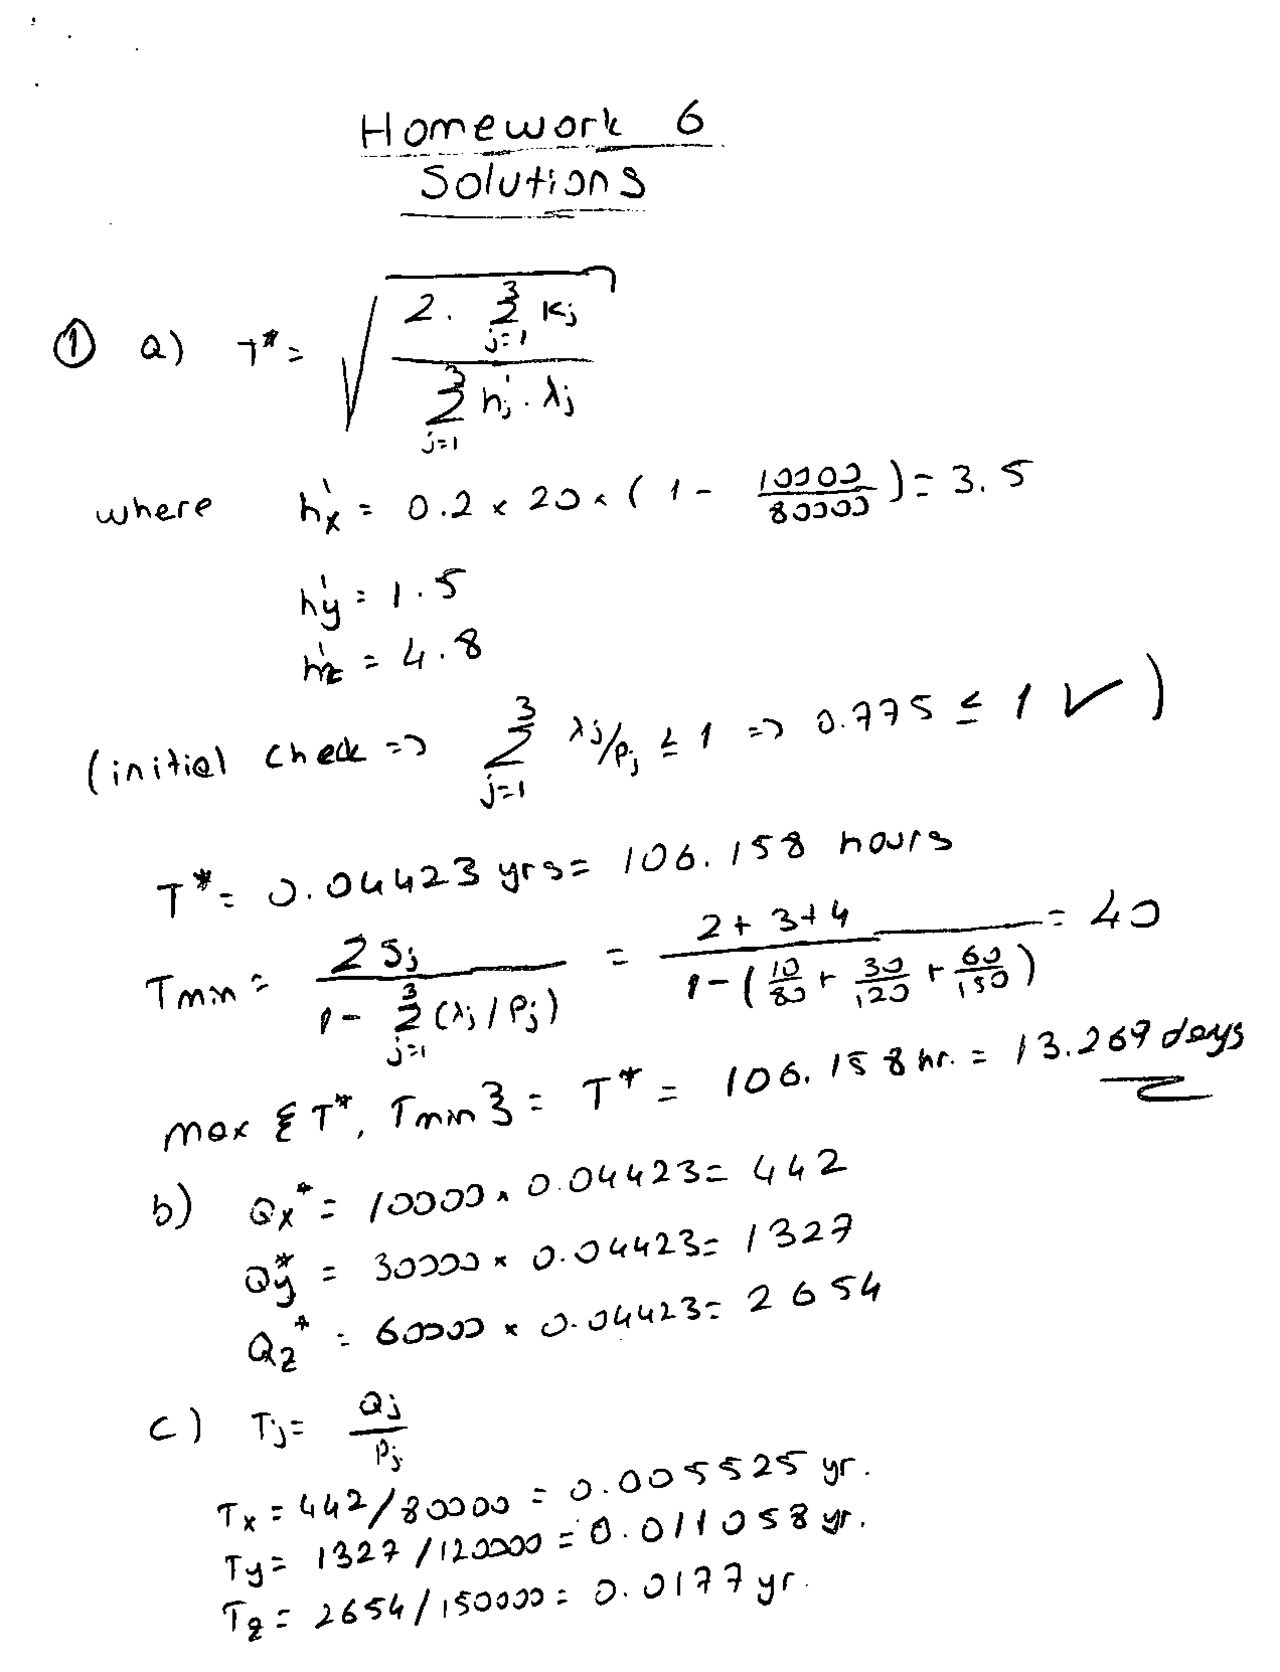 Homework 6
Solutions
① a) T* = √( 2 . Σ_{j=1}^{3} Kj / Σ_{j=1}^{3} h'j . λj )
where h'x = 0.2 × 20 × ( 1 - 10000/80000 ) = 3.5
h'y = 1.5
h'z = 4.8
(initial check => Σ_{j=1}^{3} λj/Pj ≤ 1 => 0.775 ≤ 1 ✓ )
T* = 0.04423 yrs = 106.158 hours
Tmin = Σ Sj / ( 1 - Σ_{j=1}^{3} (λj / Pj) ) = ( 2 + 3 + 4 ) / ( 1 - ( 10/80 + 30/120 + 60/150 ) ) = 40
max { T*, Tmin } = T* = 106.158 hr. = 13.269 days
b) Qx* = 10000 × 0.04423 = 442
Qy* = 30000 × 0.04423 = 1327
Qz* = 60000 × 0.04423 = 2654
c) Tj = Qj / Pj
Tx = 442/80000 = 0.005525 yr.
Ty = 1327/120000 = 0.011058 yr.
Tz = 2654/150000 = 0.0177 yr.